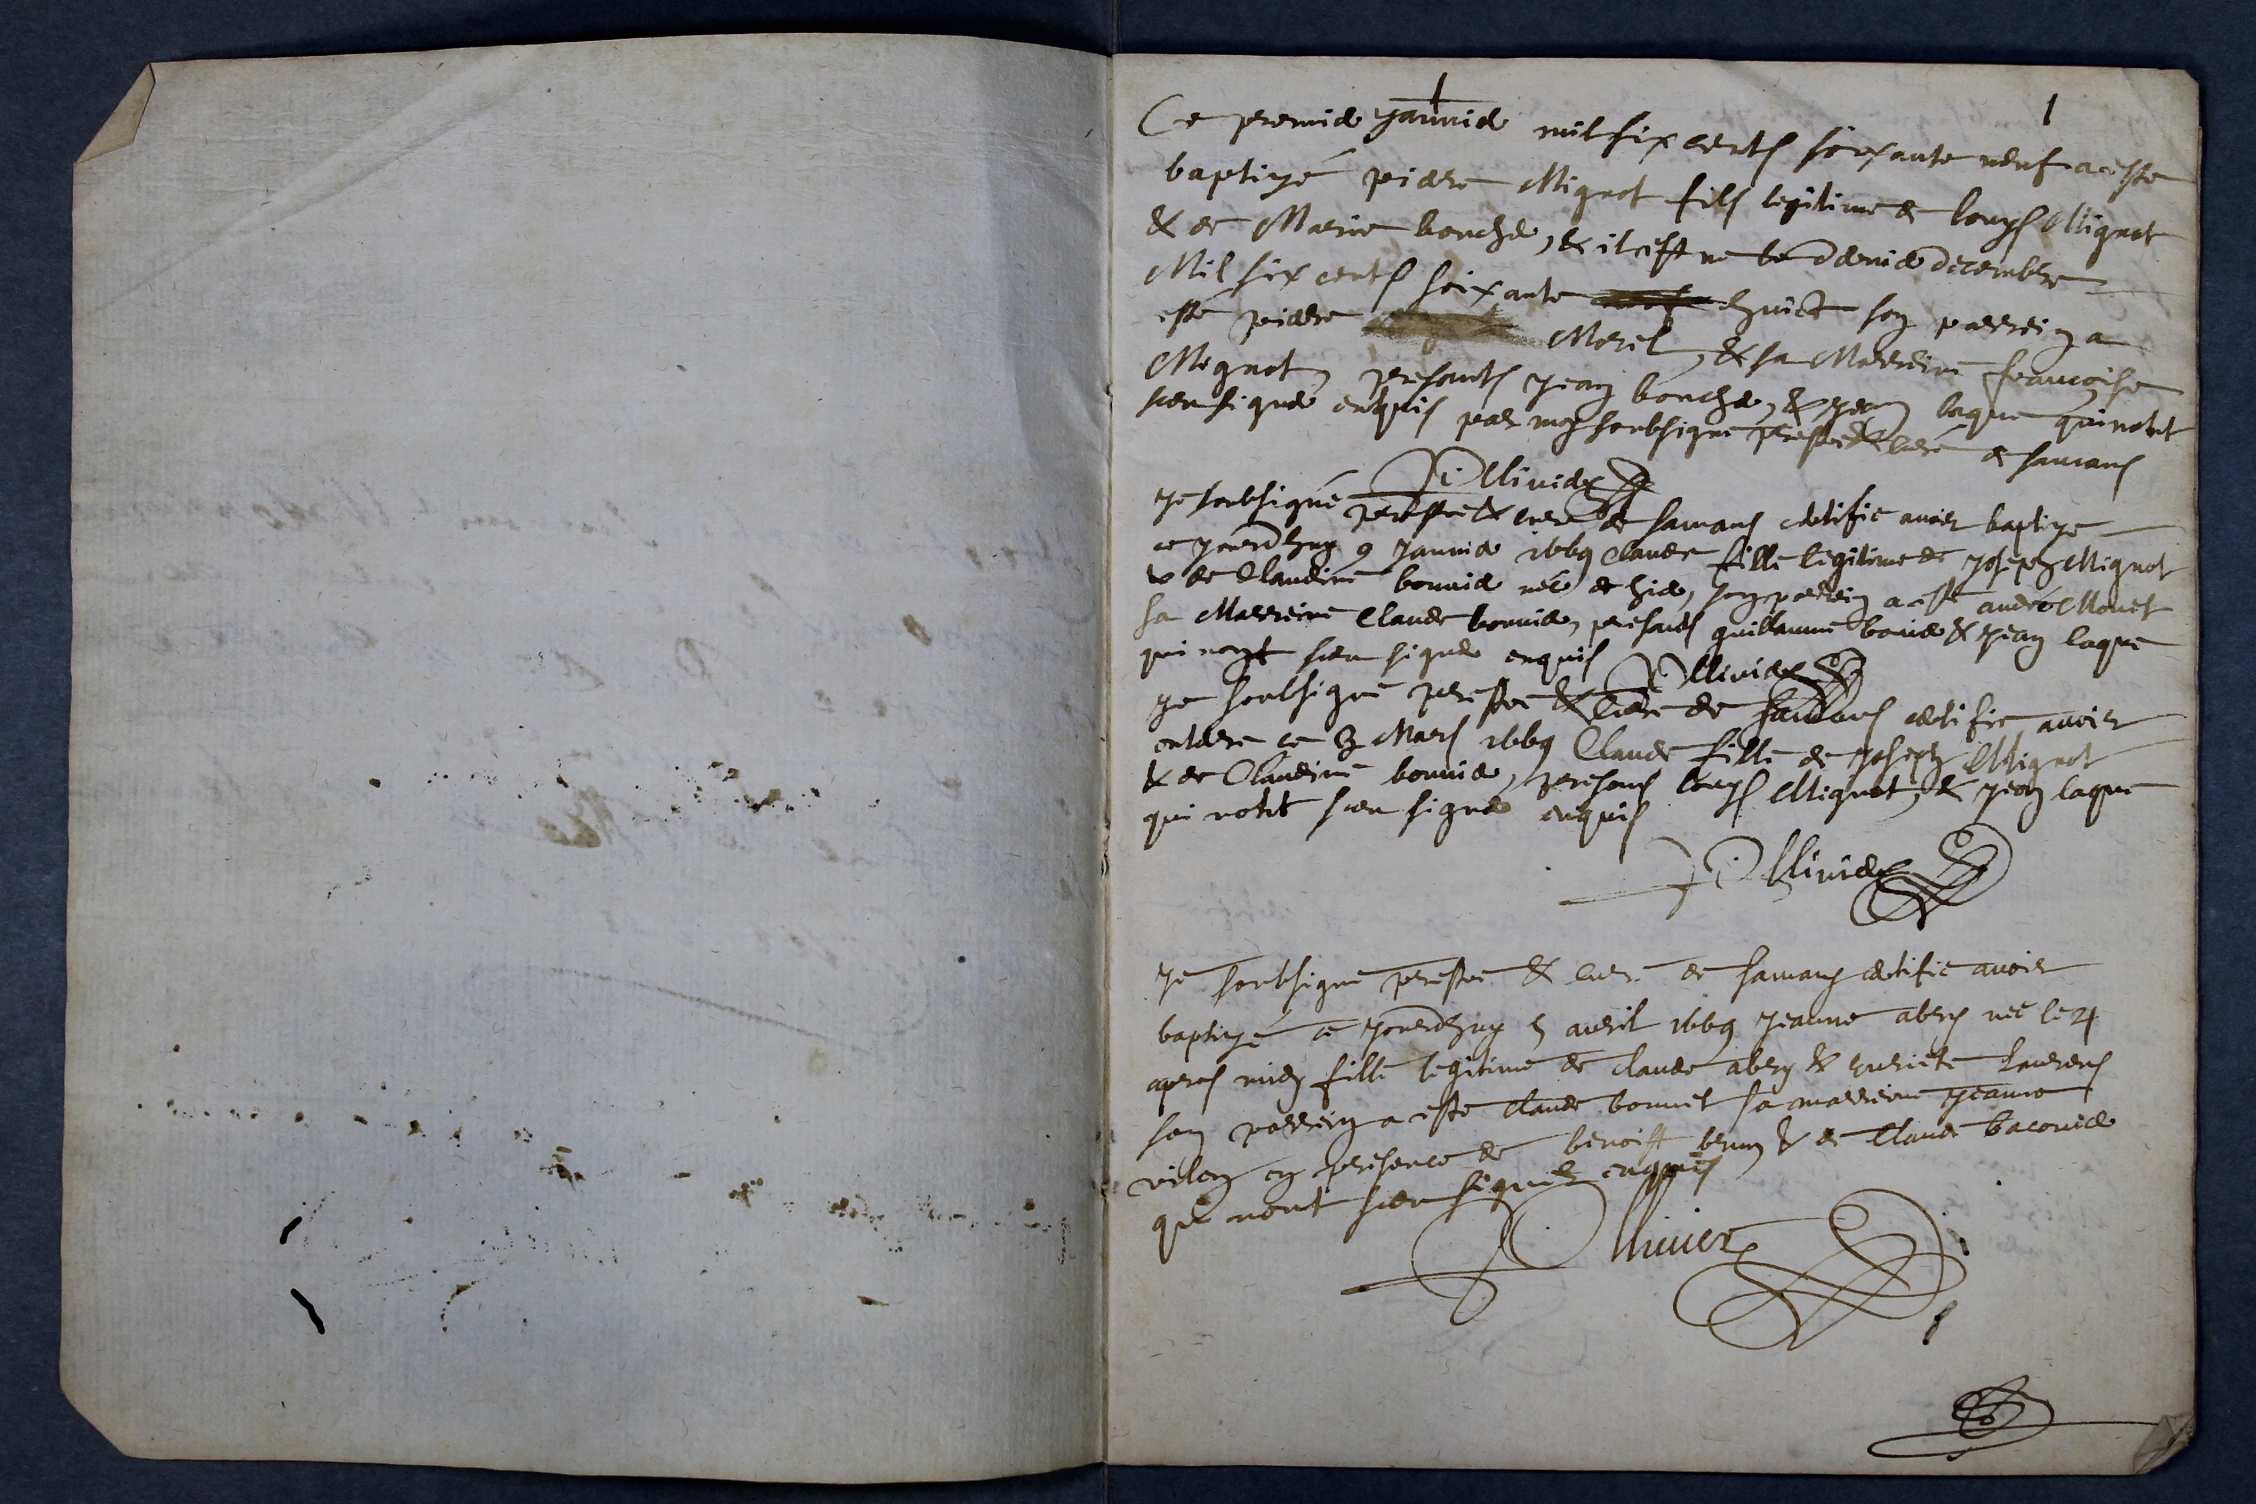 1
Ce premier Janvier mil six cents soixante neuf a este
baptizé pierre Mignot fils legitime de louys Mignot
& de Marie boucher, & il est ne le dernier decembre
Mil six cents soixante huict son parrein a
esté pierre Morel, & sa Marreine francoise
Mignot, presants Jean boucher, & Jean laque qui n'ont
sceu signer enquis par moy soubsigne prestre & curé de samans
Ollivier
Je soubsigné prestre & curé de samans certifie avoir baptize
ce jourdhuy 9 Janvier 1669 Claude fille legitime de Joseph Mignot
& de Claudine bonnier née de hier, son parrein a esté andré Monet
sa Marreine Claude bonnier, presents guillaume bonier & Jean laque
qui n'ont sceu signer enquis
Ollivier
Je soubsigné prestre & curé de samans certifie avoir
enterre ce 3 Mars 1669 Claude fille de Joseph Mignot
& de Claudine bonnier, presens louys Mignot, & Jean laque
qui n'ont sceu signer enquis
Ollivier
Je soubsigne prestre & curé de samans certifie avoir
baptizé ce jourdhuy 5 avril 1669 Jeanne abry née le 4
apres midy fille legitime de claude abry & huriete laurens
son parrein a este Claude bonnet sa marreine Jeanne
en presence de benoist brun & de Claude
qui nont sceu signer enquis
Ollivier